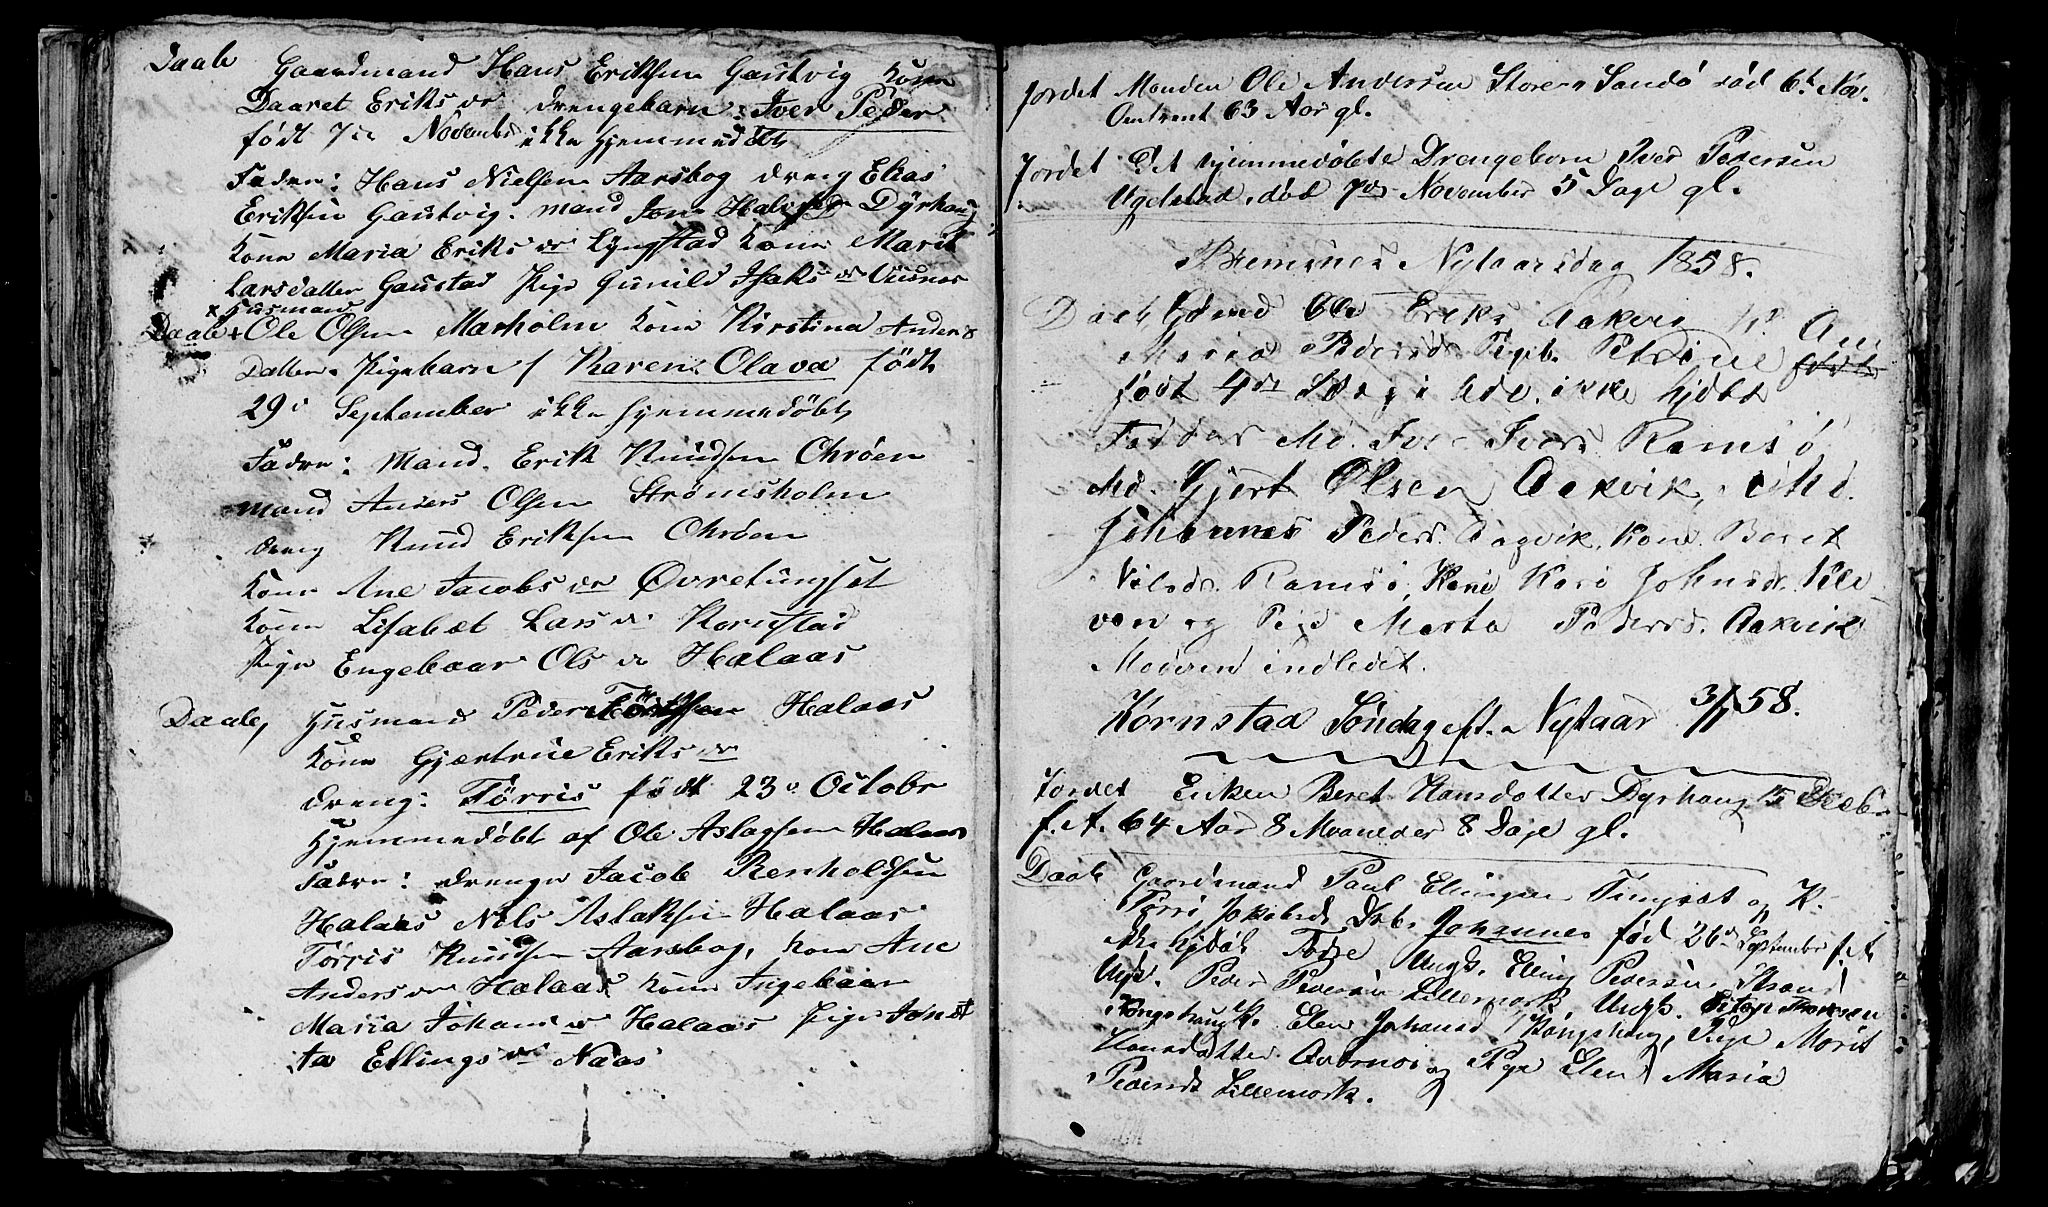 Daab Gaardmand Hans Eriksen Gaustvig Kone
Daaret Eriks dr Drengebarn: Iver Peder
født 7de November ikke hjemmedøbt
Fadre: Hans Nielsen Aarsbog dreng Elias
Eriksen Gaustvig. mand Jon Halvorsen Dyrhaug
Kone Maria Eriks dr Lyngstad Kone Marit
Larsdatter Gaustad Pige Gunild Isaks dr Vusnes
x Husmand
Daab + Ole Olsen Marholm Kone Kirstina Anders
Datter. Pigebarn / Karen Olava født
29de September ikke hjemmedøbt
Fadre: Mand. Erik Knudsen Ohrøen
mand Anders Olsen Strømsholm
dreng Knud Eriksen Ohrøen
Kone Ane Jacobs dr Øvretungset
Kone Lisabet Lars dr Kornstad
Pige Engebaar Ols dr Halaas
Daab, Husmand Peder Halaas
Kone Gjertrue Eriks dr
dreng: Tørris født 23de Octobr
Hjemmedøbt af Ole Aslagsen Halaas
Fadre: drenge Jacob Renholdsen
Halaas Nels Aslaksen Halaas
Tørris Knudsen Aarsbog, kone Ane
Anders dr Halaas kone Ingebaar
Maria Johans dr Halaas Pige Jonet
ta Ellings dr Naas
Jordet Manden Ole Andersen Store Sandø død 6t Nov.
Omtrent 63 Aar gl.
Jordet Det hjemmedøbte Drengebarn Iver Pedersen
Ugelstad, død 7de November 5 Dage gl.
Bremsnes Nytaarsdag 1858.
Daab Gmd Ole Eriks Aakvig K. An
Maria Pedersd. Pigeb. Petrine født
født 4de ikke hjdøbt
Faddar Md. Iver Ivers. Ramsø
Md. Gjert Olsen Aakvik, Md.
Johannes Peders. Aagvik. Kone Beret
Nilsd. Ramsø, Kone Kari Johnsd. Kle-
ven og Pige Marta Pedersd. Aakvik
Moderen indledet.
Kornstad Søndag eft. Nytaar 3/1 58.
Jordet Enken Beret Hansdatter Dyrhaug 15 Decebr
f. A. 64 Aar 8 Maaneder 8 Dage gl.
Daab Gaardmand Paul Ellingsen Tingvat og K.
Jakobsd. Drb. Johannes fød 26de September f. A.
hjdøb Ungk. Elling Pedersen Strand
Ungk. Peder Pedersen Lillemork, Ungk.
Kongshaug K. Elen Johansd Kongshaug, Pige Marit
Hansdatter og Pige Elen Maria
Pedersdr Lillemork.